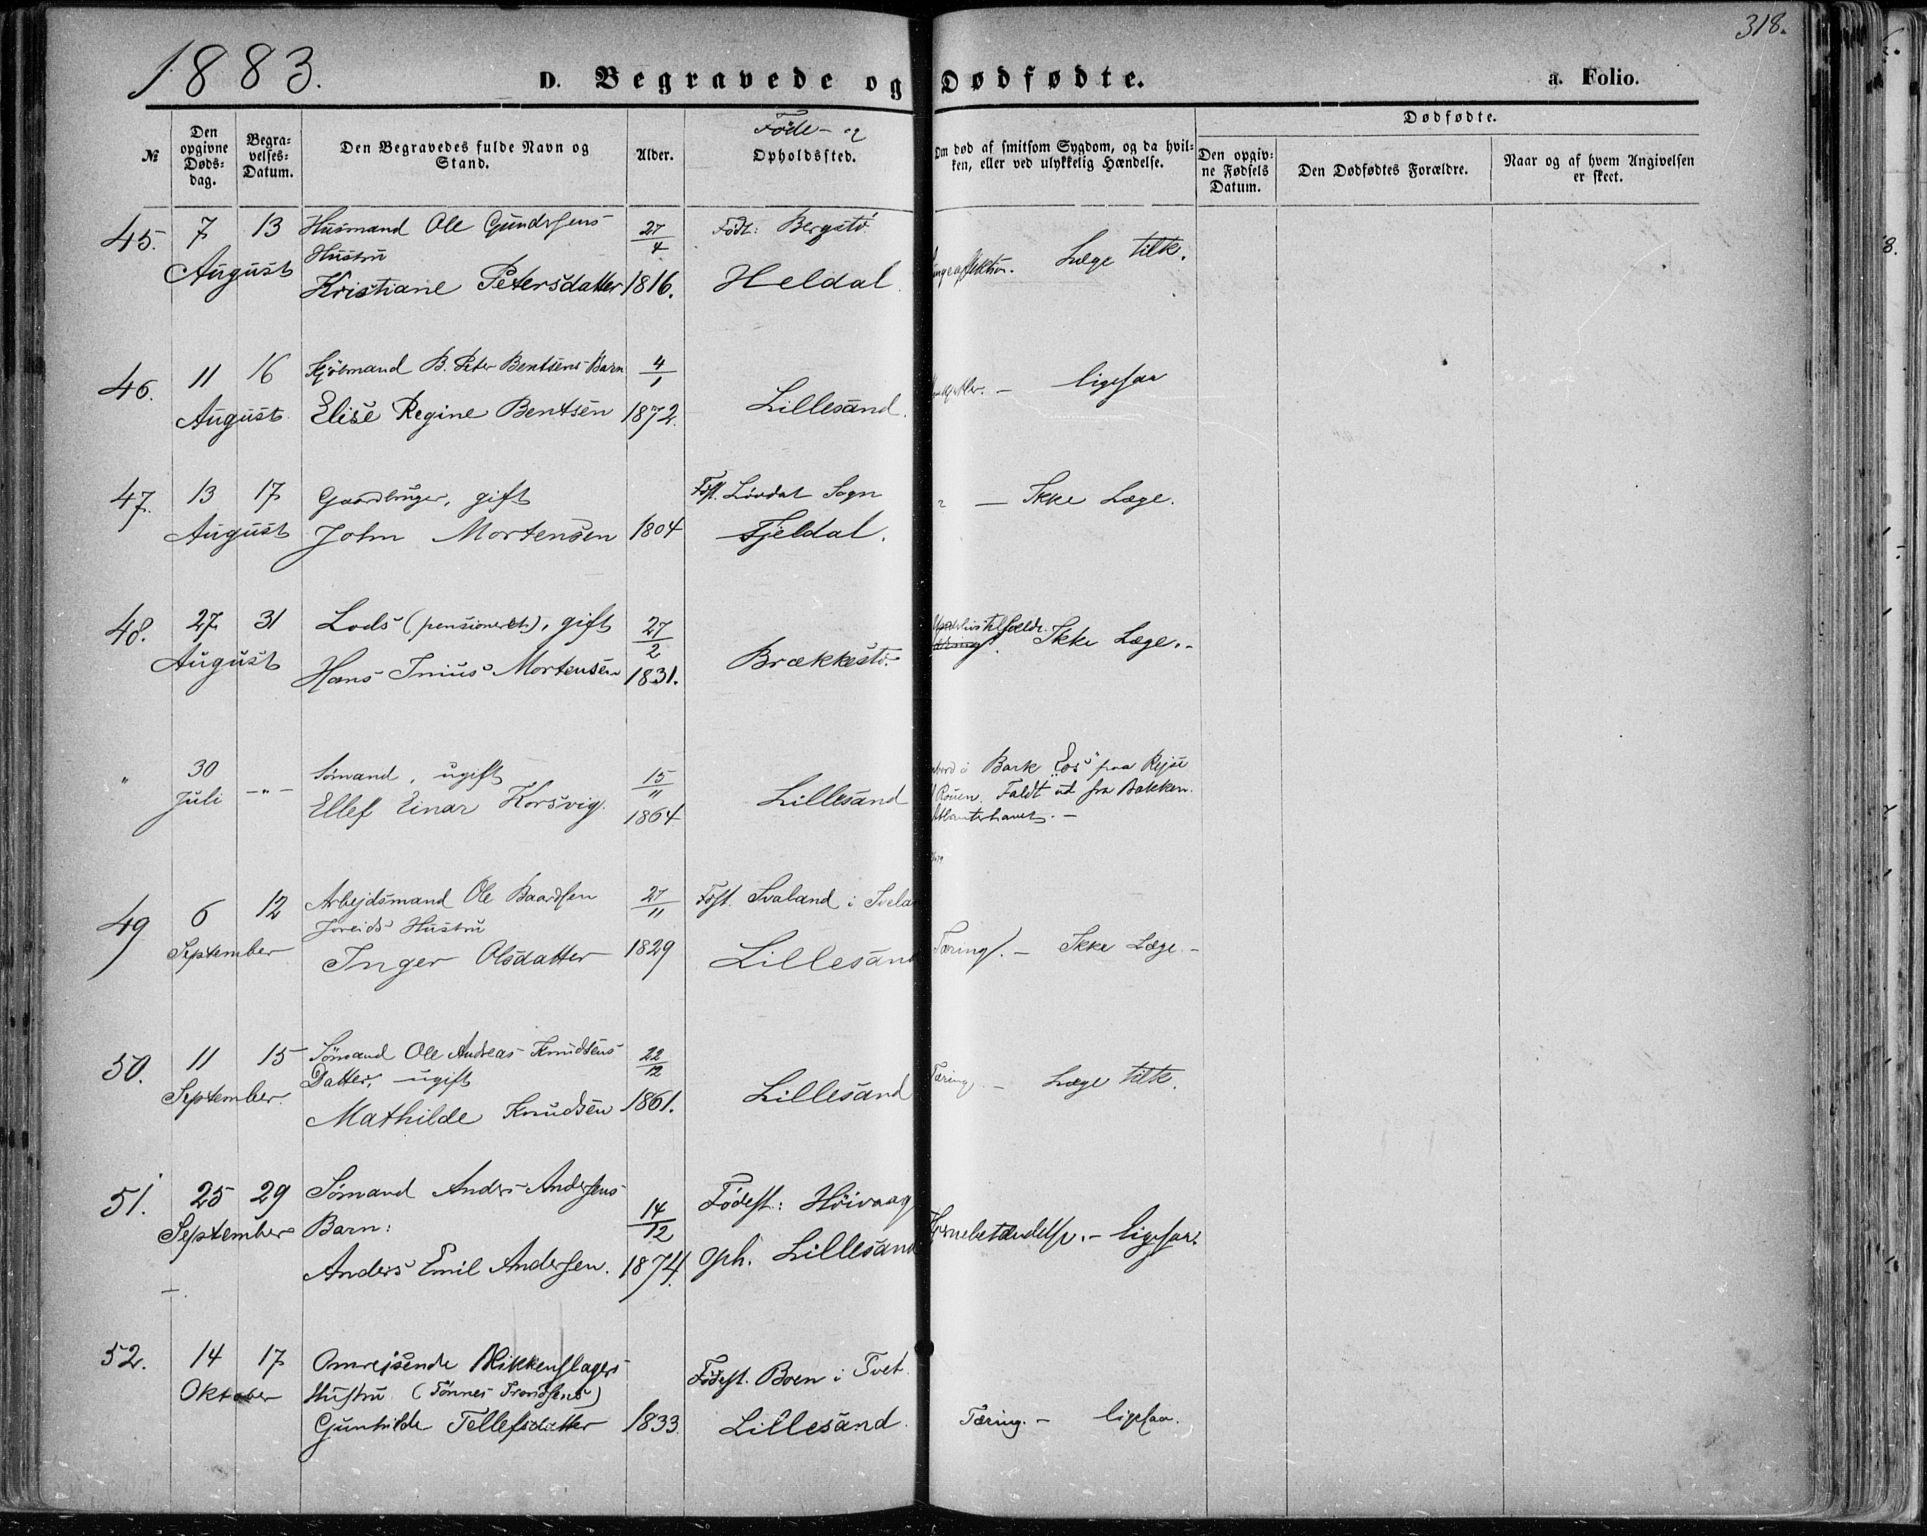 318.
1883.
D. Begravede og Dødfødte.
a. Folio.
№
Den opgivne Døds-dag.
Begra-velses-Datum.
Den Begravedes fulde Navn og Stand.
Alder.
Føde- og
Opholdssted.
Om død af smitsom Sygdom, og da hvil-
ken, eller ved ulykkelig Hændelse.
Dødfødte.
Den opgiv-
ne Fødsels
Datum.
Den Dødfødtes Forældre.
Naar og af hvem Angivelsen
er skeet.
45. 7 13 Husmand Ole Gundersens 27/4 Født: Bergstø
Hustru
August Kristiane Petersdatter 1816. Heldal. Læge tilk.
46. 11 16 Sjømand B. Peter Bentsens Barn 4/1
August Elise Regine Bentsen 1872. Lillesand. — ligesaa
47. 13 17 Gaardbruger, gift Sogn — Ikke Læge.
August John Mortensen 1804 Fjeldal.
48. 27 31 Lods (pensioneret), gift 27/2
August Hans Mortensen 1831. Brækkestø. Ikke Læge. -
" 30 Sømand, ugift 15/11
Juli -"- Ellef Einar Korsvig. 1864 Lillesand
Bark "Eos" fra
Rouen. Faldt ud fra Bakken.
Atlanterhavet. —
49 6 12 Arbejdsmand Ole Baardsen 27/11 Føst. Svaland i
Hustru
September Inger Olsdatter 1829 Lillesand Tæring. — Ikke Læge. -
50. 11 15 Sømand Ole Andreas Knudsens 22/12
Datter, ugift
September. Mathilde Knudsen 1861. Lillesand Tæring. — Læge tilk.
51. 25 29 Sømand Anders Andersens 14/12 Fødest: Høivaag
September Barn:
Anders Emil Andersen. 1874. Oph. Lillesand Hjernebetændelse. - ligesaa.
52. 14 17 Omrejsende Blikkenslagers Fødest. Boen i Tvet
Oktober Hustru (Tønnes Trondsens)
Gunhilde Tellefsdatter 1833. Lillesand. Tæring. - ligesaa.